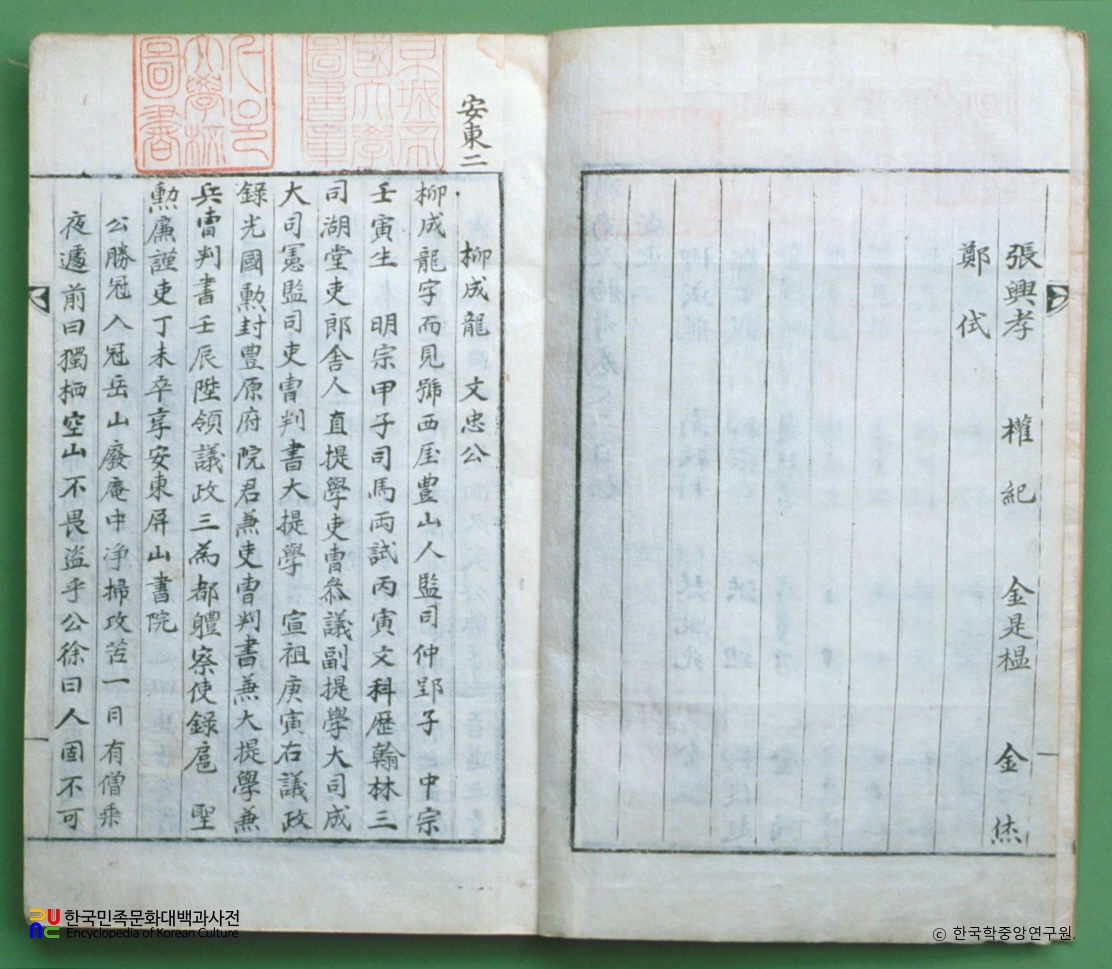 張興孝 權紀 金是榲 金烋
鄭侙
安東二
京城帝國大學圖書章
서울大學校圖書
柳成龍 文忠公
柳成龍字而見號西厓豊山人監司仲郢子 中宗
壬寅生 明宗甲子司馬両試丙寅文科歷翰林三
司湖堂吏郎舍人直提學吏曺叅議副提學大司成
大司憲監司吏曺判書大提學 宣祖庚寅右議政
錄光國勲封豊原府院君兼吏曺判書兼大提學兼
兵曺判書壬辰陞領議政三為都軆察使錄扈 聖
勲廉謹吏丁未卒享安東屏山書院
公勝冠入冠岳山廢庵中净掃攻苦一日有僧乘
夜遽前曰獨栖空山不畏盗乎公徐曰人固不可
한국민족문화대백과사전
Encyclopedia of Korean Culture
ⓒ 한국학중앙연구원.